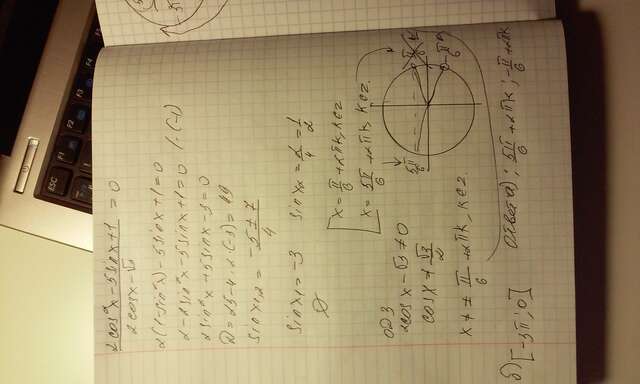 ESC F1 F2 F3 F4
(2cos²x - 5sinx + 1) / (2cosx - √3) = 0
2(1 - sin²x) - 5sinx + 1 = 0
2 - 2sin²x - 5sinx + 1 = 0 /·(-1)
2sin²x + 5sinx - 3 = 0
D = 25 - 4·2·(-3) = 49
sinx₁,₂ = (-5 ± 7) / 4
sinx₁ = -3 sinx₂ = 2/4 = 1/2
∅
[ x = π/6 + 2πk, k∈z
x = 5π/6 + 2πk, k∈z.
ОДЗ
2cosx - √3 ≠ 0
cosx ≠ √3/2
x ≠ ± π/6 + 2πk, k∈z.
5π/6 π/6
-π/6
Ответ а): 5π/6 + 2πk; -π/6 + 2πk
б) [-3π; 0]